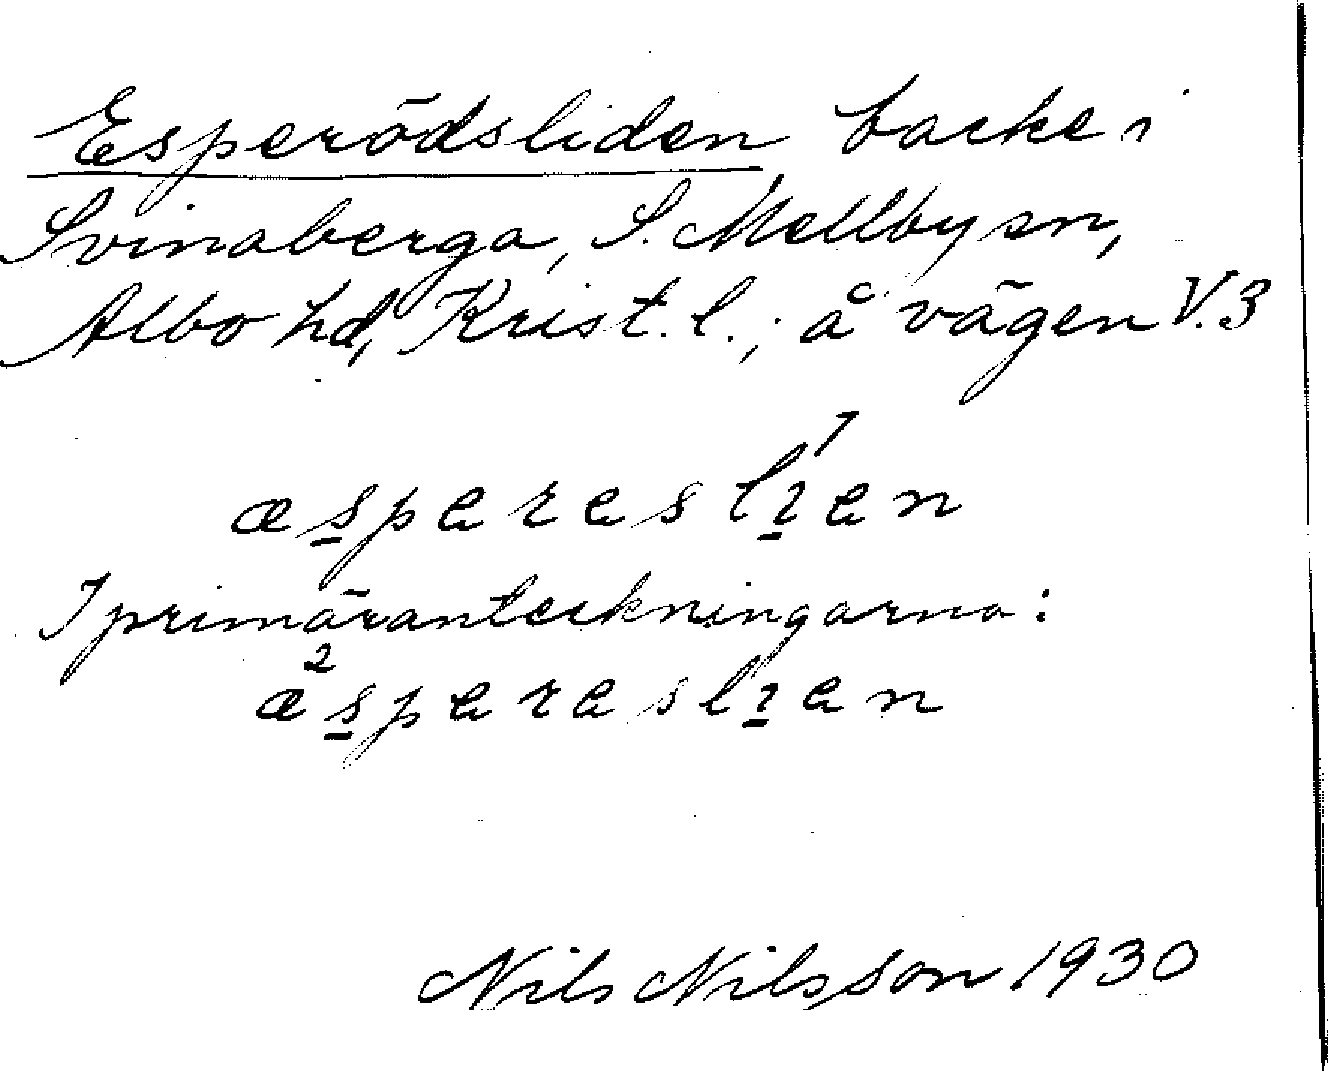 Esperödsliden backe i
Svinaberga, S. Mellby sn,
Albo hd, Krist. l.; å vägen V.3
æs̲pereslı̲⁷en
I primäranteckningarna:
æ²s̲pereslı̲en
Nils Nilsson 1930